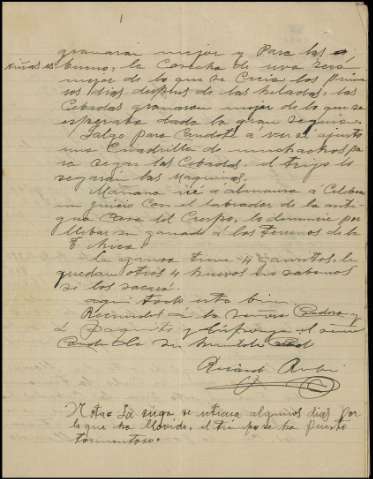 granaran mejor y Para las
viñas es bueno, la Cosecha de uva será
mejor de lo que se Creia los prime
ros dias despues de las heladas, las
Cebadas granaran mejor de lo que se
esperaba dada la gran sequia.
Salgo para Caudete á ver si ajusto
una Cuadrilla de muchachos pa
ra segar las Cebadas, el trigo lo
segarán las Maquinas.
Mañana iré a almansa a Celebrar
un juicio Con el labrador de la anti
gua Casa del Campo, lo denuncie por
llebar su ganado á los terrenos de la
la gansa tiene 4 gansitos, le
quedan otros 4 huevos no sabemos
si los sacará.
aqui todo esta bien
Recuerdos á la Señora
á Paquito y el
su humilde
Ricardo
Nota= La siega se retrasa algunos dias por
lo que ha llovido, el tiempo se ha puesto
tormentoso.